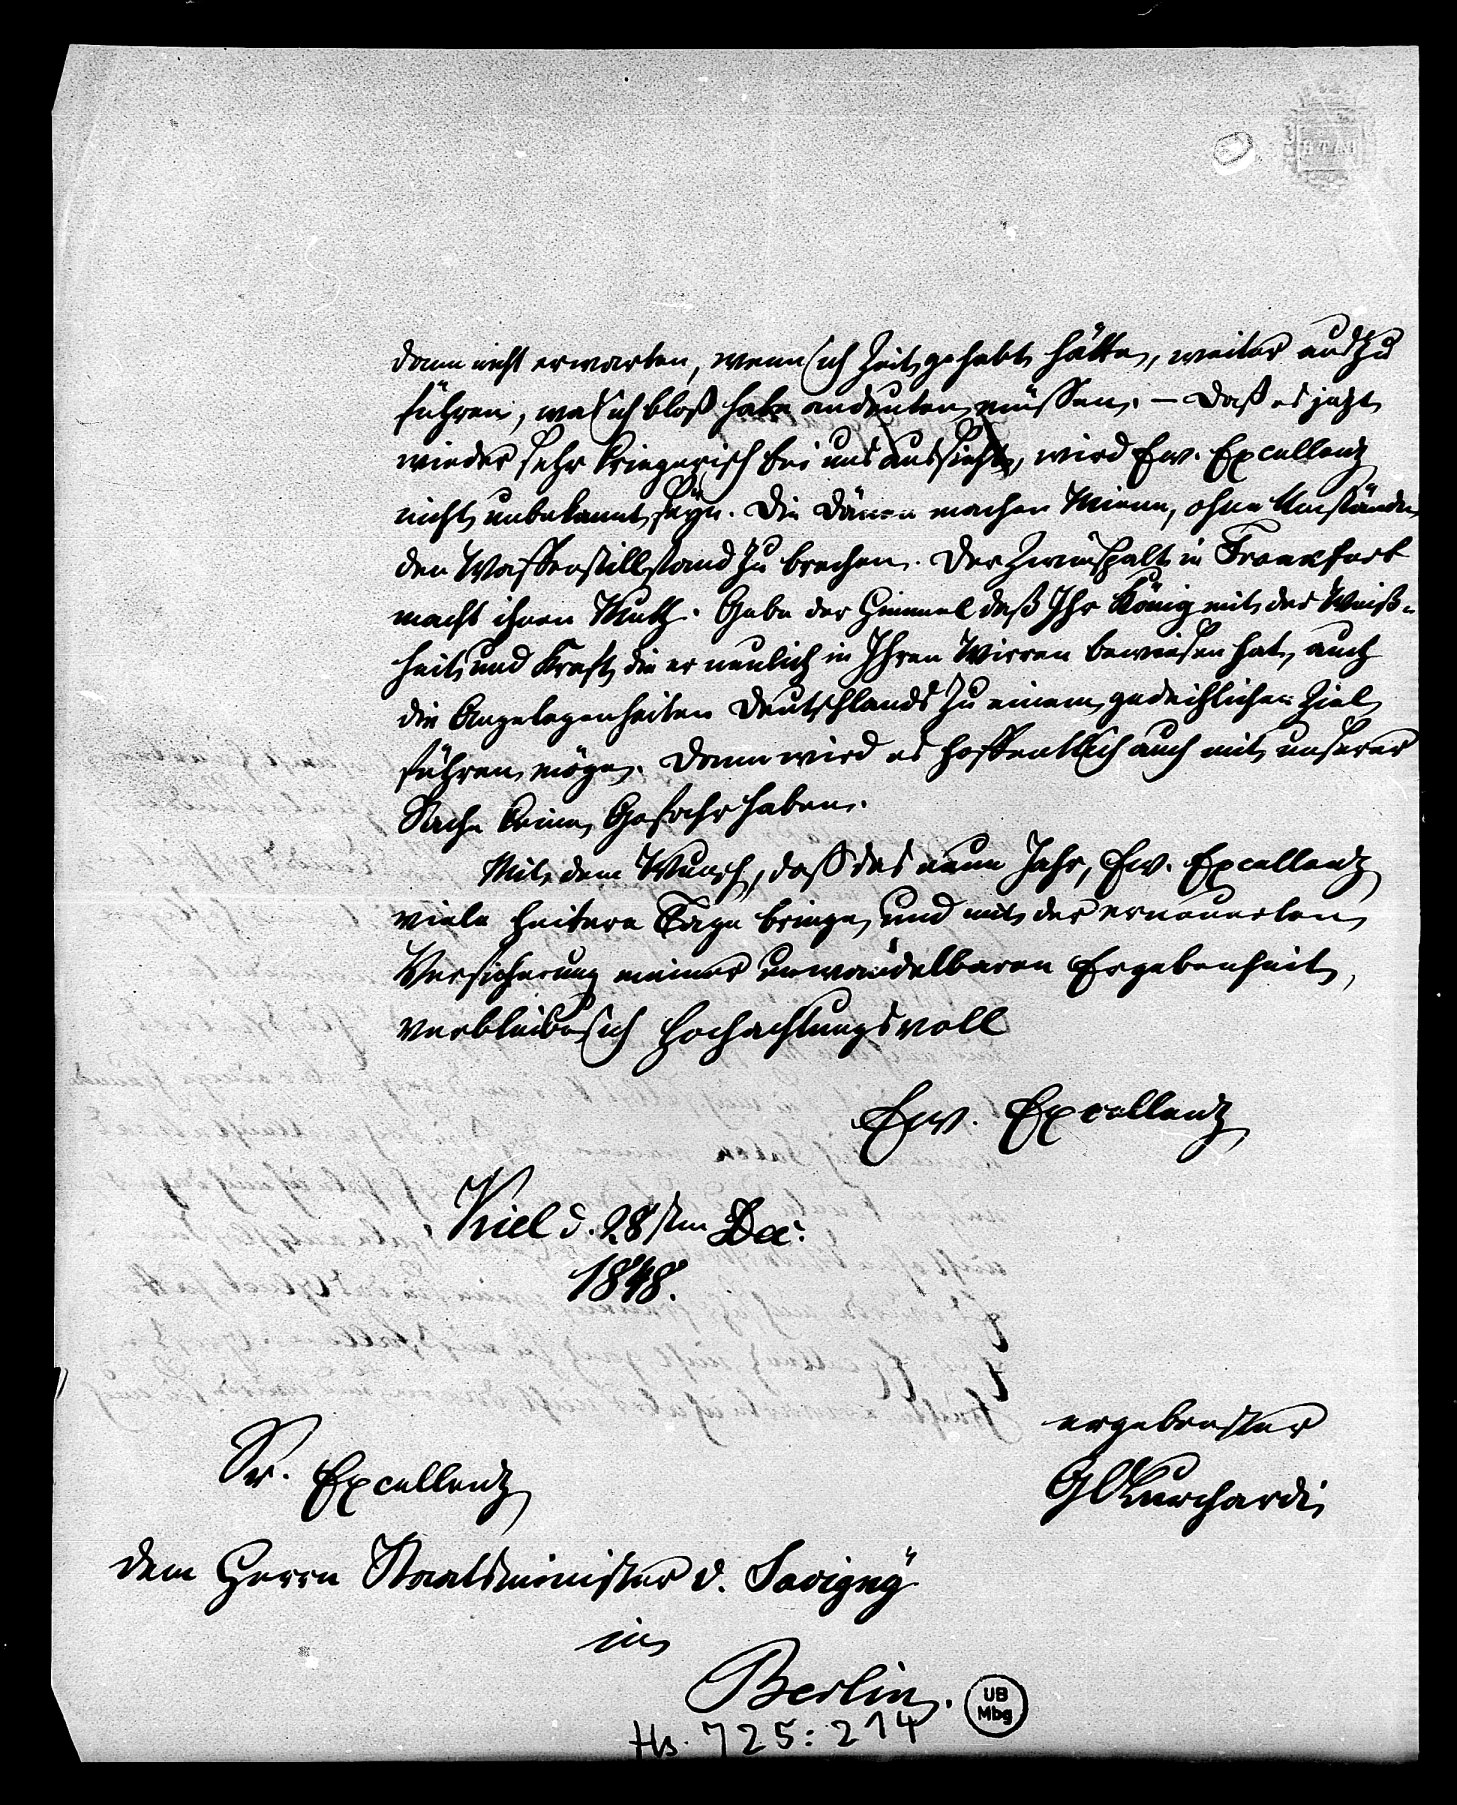 dann nicht erwarten, wenn ich Zeit gehabt hätte, weiter auszu
führen, was ich bloß habe andeuten müssen. – Daß es jetzt
wieder sehr kriegerisch bei uns aussieht, wird Ew. Excellenz
nicht unbekannt seyn. Die Dänen machen Miene, ohne Umstände
den Waffenstillstand zu brechen. Der Zwiespalt in Frankfurt
macht ihnen Muth. Gebe der Himmel daß Ihr König mit der Weiß-
heit und Kraft, die er neulich in Ihren Wirren bewiesen hat, auch
die Angelegenheiten Deutschlands zu einem gedeihlichen Ziel
führen möge. Dann wird es hoffentlich auch mit unserer
Sache keine Gefahr haben.
Mit dem Wunsch, daß das neue Jahr, Ew. Excellenz
viele heitere Tage bringe, und mit der erneuerten
Versicherung meiner unwandelbaren Ergebenheit,
verbleibe ich hochachtungsvoll
Ew. Excellenz
Kiel d. 28sten Dec.
1848.
ergebenster
GCBurchardi
Sr. Excellenz
dem Herrn Staatsminister v. Savigny
in
Berlin.
UB
Mbg
Hs. 725: 214